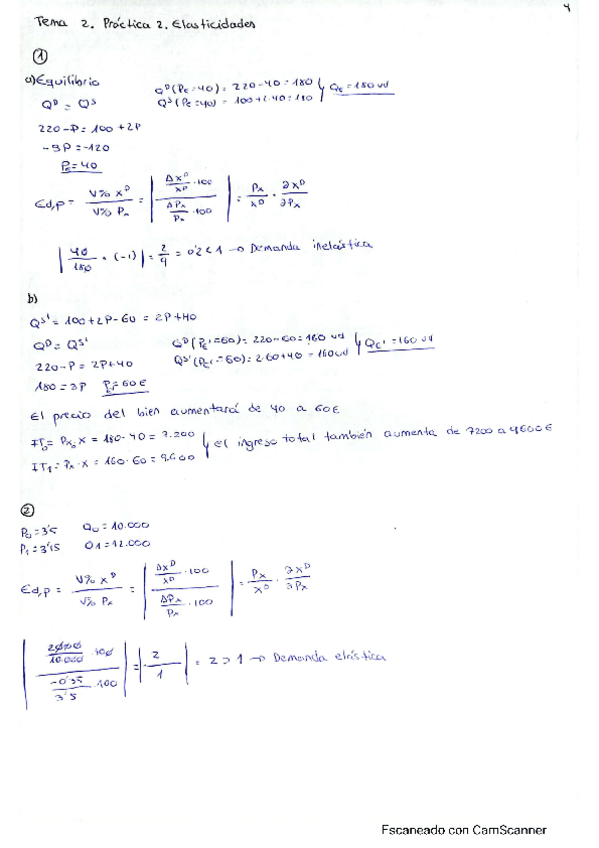 4
Tema 2. Práctica 2. Elasticidades
①
a) Equilibrio
Q^D = Q^S
Q^D (P_E = 40) = 220 - 40 = 180
Q^S (P_E = 40) = 100 + 2·40 = 180
Q_E = 180 ud
220 - P = 100 + 2P
-3P = -120
P_E = 40
Ed,p = V% X^D / V% P_x = | (ΔX^D / X^D · 100) / (ΔP_x / P_x · 100) | = P_x / X^D · ∂X^D / ∂P_x
| 40 / 180 · (-1) | = 2/9 = 0'2 < 1 → Demanda inelástica
b)
Q^S' = 100 + 2P - 60 = 2P + 40
Q^D = Q^S'
Q^D (P_E' = 60) = 220 - 60 = 160 ud
Q^S' (P_E' = 60) = 2·60 + 40 = 160 ud
Q_E' = 160 ud
220 - P = 2P + 40
180 = 3P P_E' = 60 €
El precio del bien aumentará de 40 a 60 €
IT_0 = P_x0 · X = 180·40 = 7.200
IT_1 = P_x · X = 160·60 = 9.600
el ingreso total también aumenta de 7200 a 9600 €
②
P_0 = 3'5 Q_0 = 10.000
P_1 = 3'15 Q1 = 12.000
Ed,p = V% X^D / V% P_x = | (ΔX^D / X^D · 100) / (ΔP_x / P_x · 100) | = P_x / X^D · ∂X^D / ∂P_x
| (2000 / 10.000 · 100) / (-0'35 / 3'5 · 100) | = | 2 / 1 | = 2 > 1 → Demanda elástica
Escaneado con CamScanner